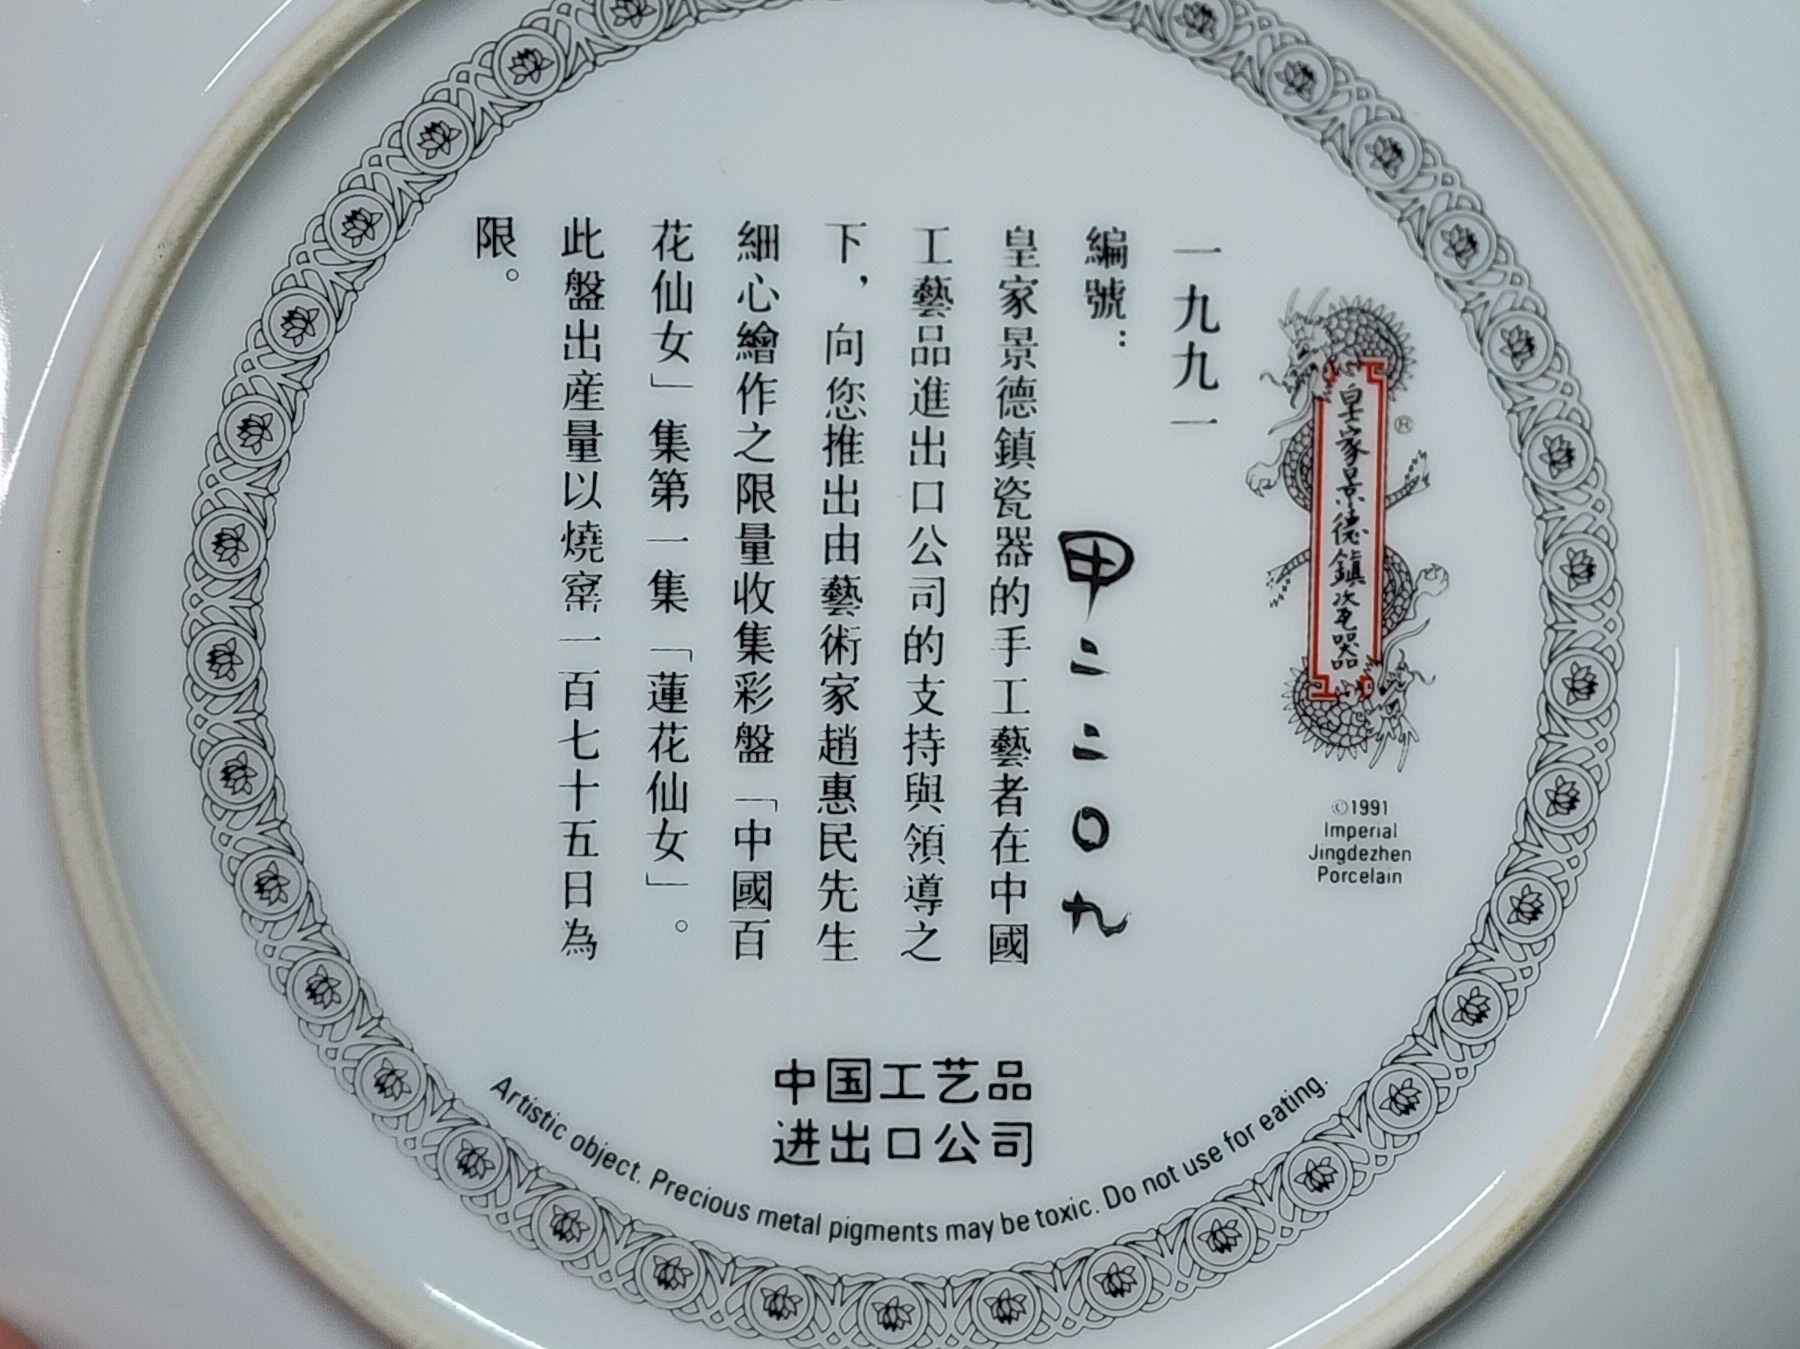 皇家景德鎮瓷器
®
©1991
Imperial
Jingdezhen
Porcelain
一九九一
編號：甲二二〇九
皇家景德鎮瓷器的手工藝者在中國
工藝品進出口公司的支持與領導之
下，向您推出由藝術家趙惠民先生
細心繪作之限量收集彩盤「中國百
花仙女」集第一集「蓮花仙女」。
此盤出産量以燒窰一百七十五日為
限。
中国工艺品
进出口公司
Artistic object. Precious metal pigments may be toxic. Do not use for eating.